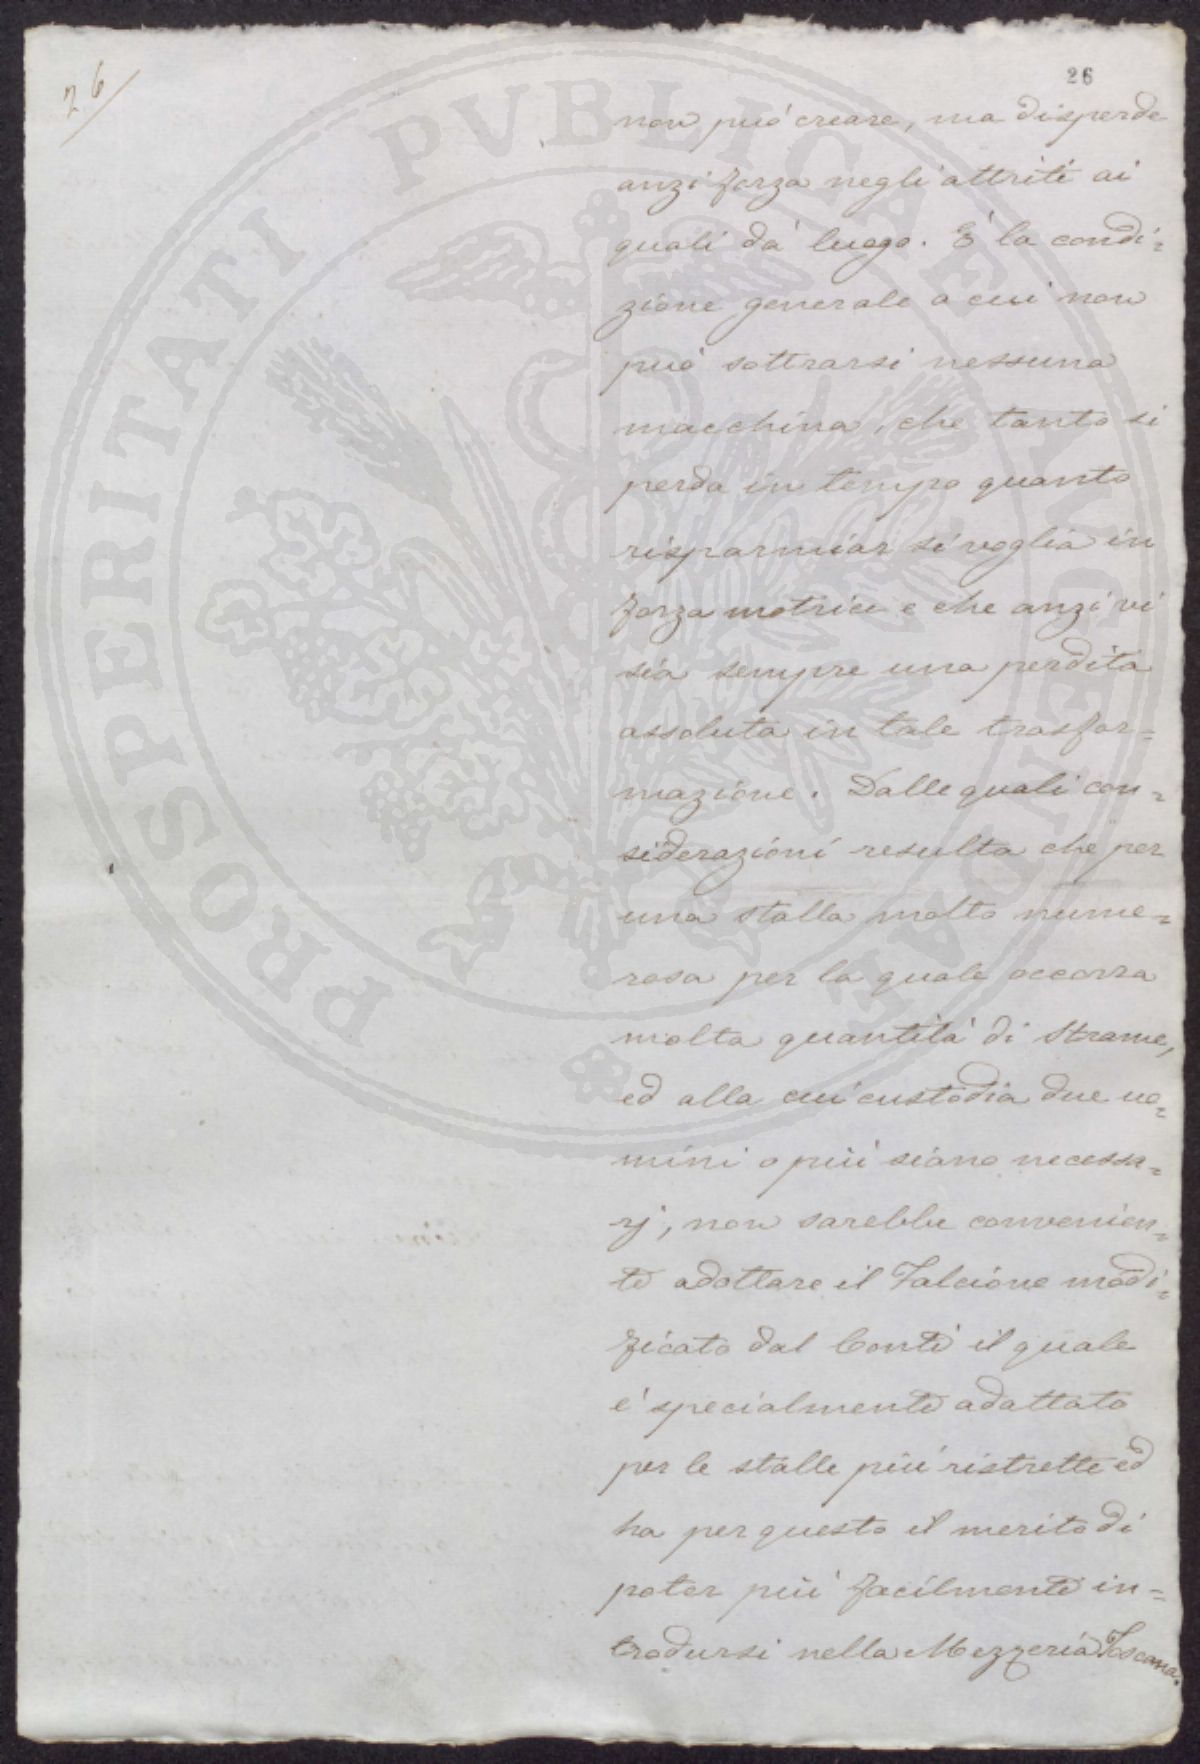 26
26
non può creare, ma disperde
anzi forza negli attriti ai
quali dà luogo. È la condi=
zione generale a cui non
può sottrarsi nessuna
macchina, che tanto si
perda in tempo quanto
risparmiar si voglia in
forza motrice e che anzi vi
sia sempre una perdita
assoluta in tale trasfor=
mazione. Dalle quali con=
siderazioni resulta che per
una stalla molto nume=
rosa per la quale occorra
molta quantità di Strame,
ed alla cui custodia due uo=
mini o più siano necessa=
rj, non sarebbe convenien=
te adottare il Falcione modi=
ficato dal Conti il quale
è specialmente adattato
per le stalle più ristrette ed
ha per questo il merito di
poter più facilmente in=
trodursi nella Mezzeria Toscana.
PROSPERITATI PVBLICAE AVGENDAE